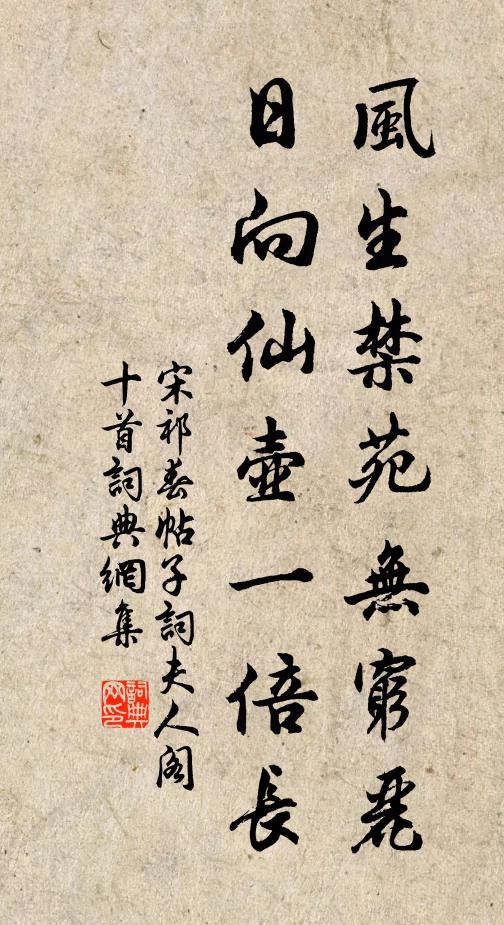 風生禁苑無窮麗
日向仙壺一倍長
宋祁春帖子詞夫人閣
十首詞典網集
詞典
网印